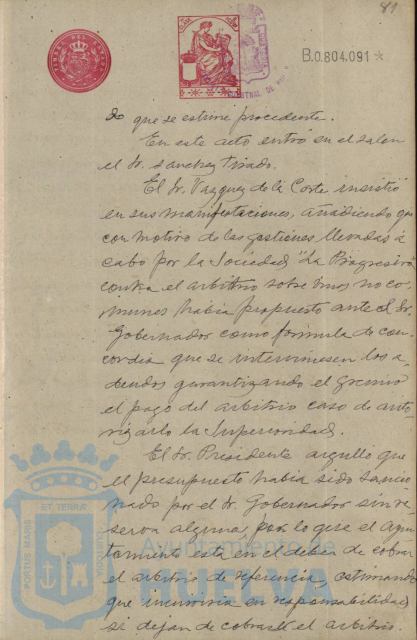 81
B.0.804.091 *
do que se estime procedente.
En este acto entró en el salon
el Sr. Sanchez Tirado.
El Sr. Vazquez de la Corte insistió
en sus manifestaciones, añadiendo que
con motivo de las gestiones llevadas á
cabo por la Sociedad "La Progresiva"
contra el arbitrio sobre vinos no co-
munes habia propuesto ante el Sr.
Gobernador como formula de con-
cordia que se interviniesen los a-
deudos garantizando el Gremio
el pago del arbitrio caso de auto-
rizarlo la Superioridad.
El Sr. Presidente arguyo que
el presupuesto habia sido sancio
nado por el Sr. Gobernador sin re
serva alguna, por lo que el Ayun
tamiento está en el deber de cobrar
el arbitrio de referencia, estimando
que incurriria en responsabilidades
si dejan de cobrarse el arbitrio.
PORTUS MARIS ET TERRAE
Ayuntamiento de
HUELVA